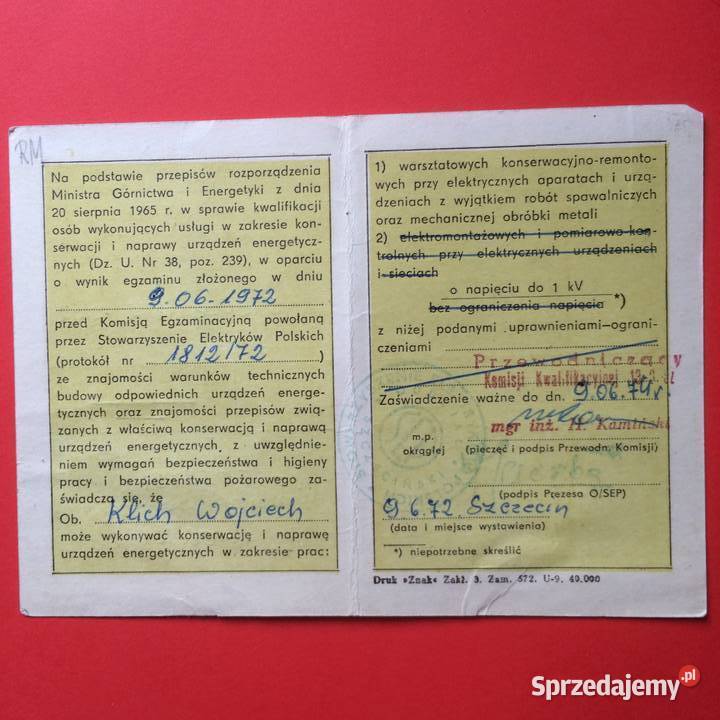 RM
Na podstawie przepisów rozporządzenia
Ministra Górnictwa i Energetyki z dnia
20 sierpnia 1965 r. w sprawie kwalifikacji
osób wykonujących usługi w zakresie kon-
serwacji i naprawy urządzeń energetycz-
nych (Dz. U. Nr 38, poz. 239), w oparciu
o wynik egzaminu złożonego w dniu
9.06.1972
przed Komisją Egzaminacyjną powołaną
przez Stowarzyszenie Elektryków Polskich
(protokół nr 1812/72 )
ze znajomości warunków technicznych
budowy odpowiednich urządzeń energe-
tycznych oraz znajomości przepisów zwią-
zanych z właściwą konserwacją i naprawą
urządzeń energetycznych, z uwzględnie-
niem wymagań bezpieczeństwa i higieny
pracy i bezpieczeństwa pożarowego za-
świadcza się, że
Ob. Klich Wojciech
może wykonywać konserwację i naprawę
urządzeń energetycznych w zakresie prac:
1) warsztatowych konserwacyjno-remonto-
wych przy elektrycznych aparatach i urzą-
dzeniach z wyjątkiem robót spawalniczych
oraz mechanicznej obróbki metali
2) elektromontażowych i pomiarowo-kon-
trolnych przy elektrycznych urządzeniach
i sieciach
o napięciu do 1 kV
bez ograniczenia napięcia *)
z niżej podanymi uprawnieniami—ograni-
czeniami
Przewodniczący
Komisji Kwalifikacyjnej
Zaświadczenie ważne do dn. 9.06.74r.
mgr inż. H. Kamiński
m.p.
okrągłej (pieczęć i podpis Przewodn. Komisji)
(podpis Prezesa O/SEP)
9.6.72 Szczecin
(data i miejsce wystawienia)
*) niepotrzebne skreślić
Druk »Znak« Zakł. 3. Zam. 572. U-9. 40.000
Sprzedajemy.pl